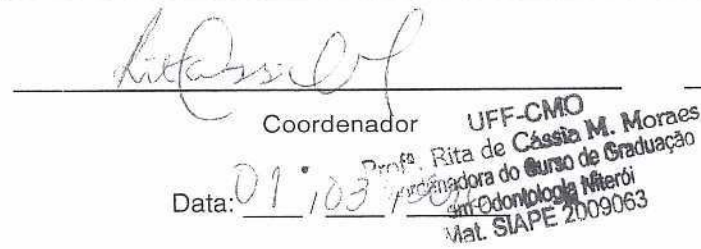 Coordenador
UFF-CMO
Profª. Rita de Cássia M. Moraes
Coordenadora do Curso de Graduação
em Odontologia Niterói
Mat. SIAPE 2009063
Data: 01 / 03 /